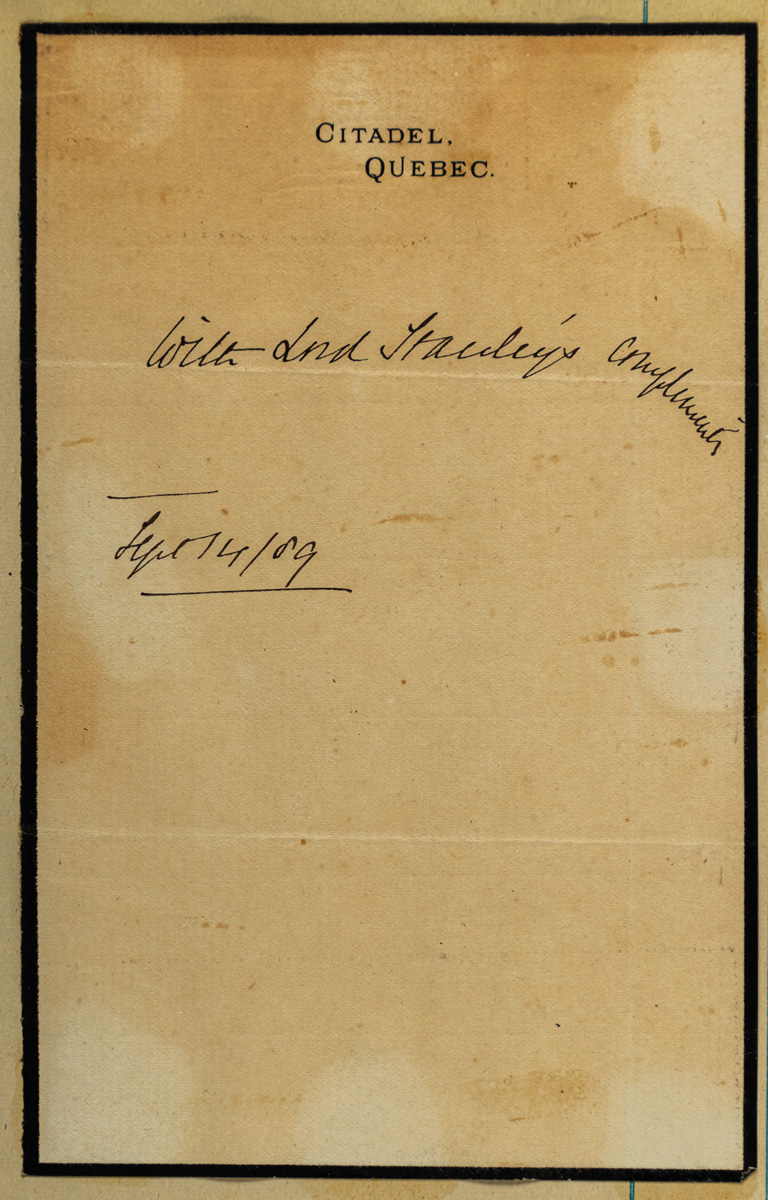 CITADEL,
QUEBEC.
With Lord Stanley's compliments
Sept 14/89